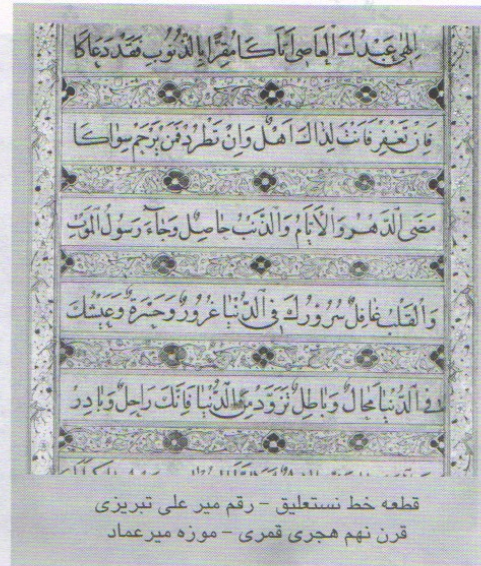 اِلٰهِي عَبْدُكَ الْعَاصِي اَتَاكَا مُقِرًّا بِالذُّنُوبِ فَقَدْ دَعَاكَا
فَاِنْ تَغْفِرْ فَانْتَ لِذَاكَ اَهْلٌ وَاِنْ تَطْرُدْ فَمَنْ يَرْحَمْ سِوَاكَا
مَضَى الدَّهْرُ وَالْاَيَّامُ وَالذَّنْبُ حَاصِلٌ وَجَاءَ رَسُولُ الْمَوْتِ
وَالْقَلْبُ غَافِلٌ سُرُورُكَ فِي الدُّنْيَا غُرُورٌ وَحَسْرَةٌ وَعَيْشُكَ
فِي الدُّنْيَا مُحَالٌ وَبَاطِلٌ تَزَوَّدْ مِنَ الدُّنْيَا فَاِنَّكَ رَاحِلٌ وَبَادِرْ
قطعه خط نستعلیق – رقم میر علی تبریزی
قرن نهم هجری قمری – موزه میرعماد